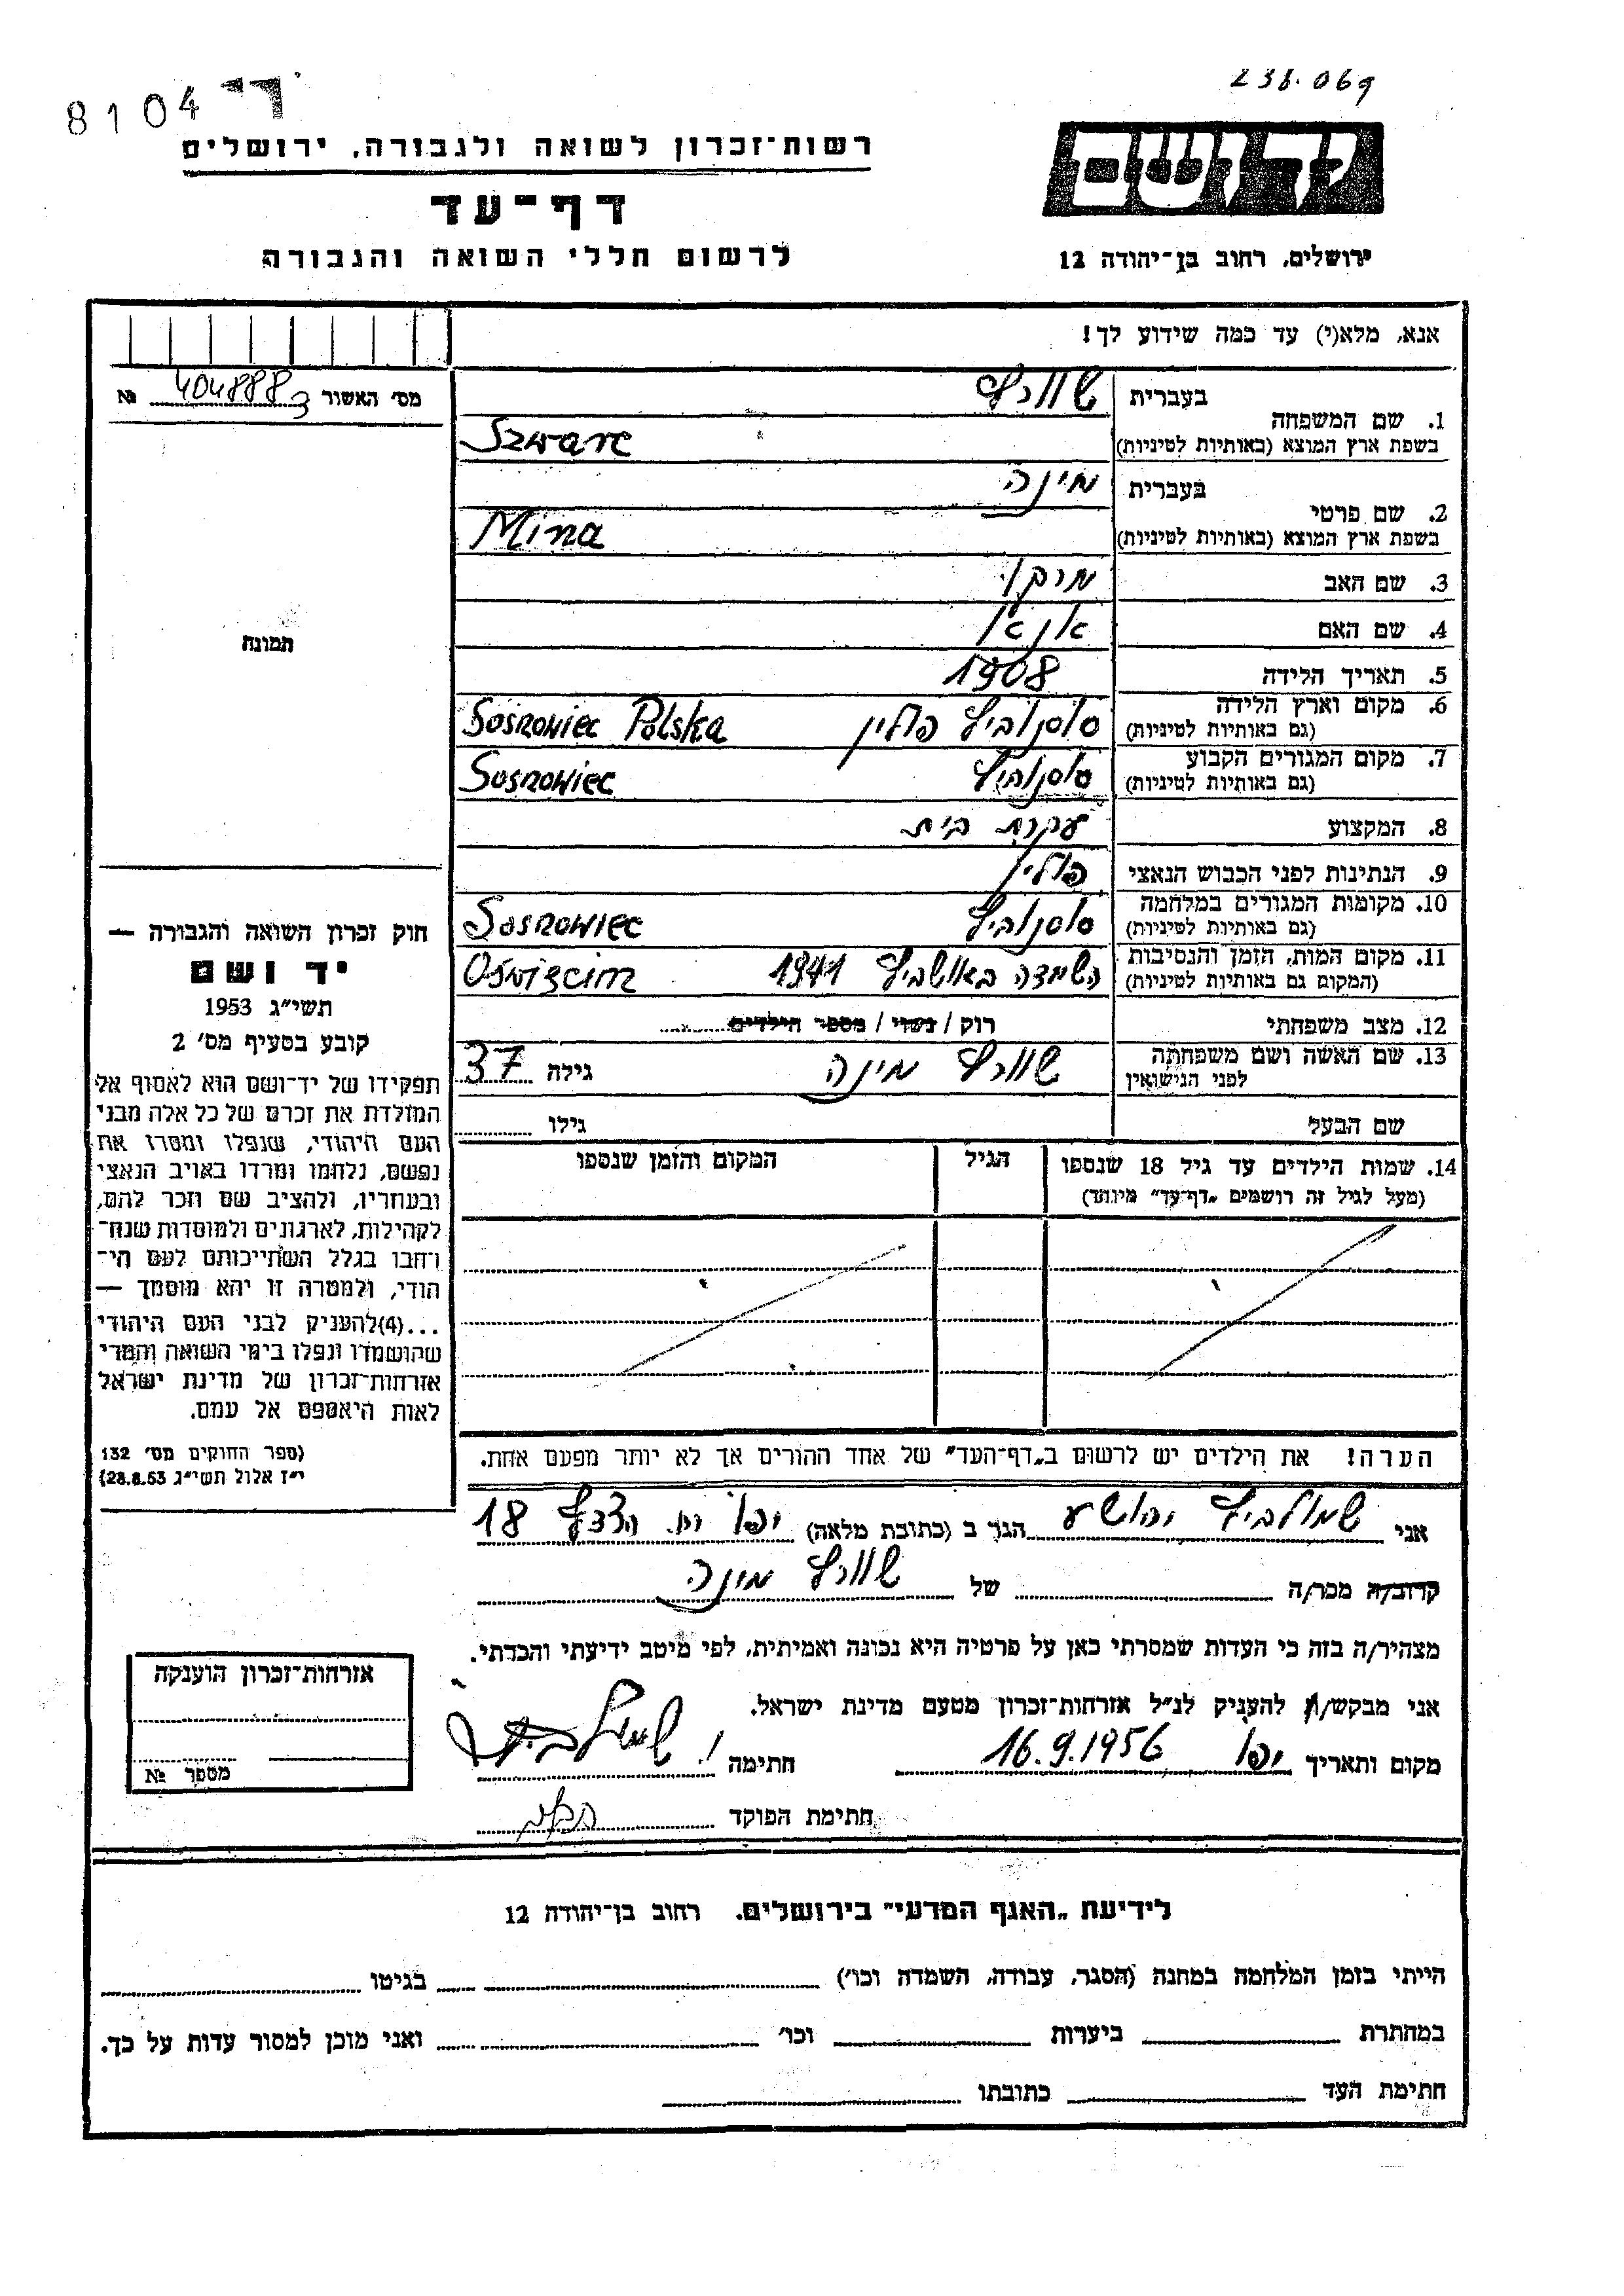 238.069
8104 ״ד
יד ושם
ירושלים, רחוב בן־יהודה 12
רשות־זכרון לשואה ולגבורה, ירושלים
דף־עד
לרשום חללי השואה והגבורה
אנא, מלא(י) עד כמה שידוע לך!
1. שם המשפחה
בעברית שוורץ
בשפת ארץ המוצא (באותיות לטיניות) Szwarc
2. שם פרטי
בעברית מינה
בשפת ארץ המוצא (באותיות לטיניות) Mina
3. שם האב
4. שם האם
5. תאריך הלידה 1908
6. מקום וארץ הלידה
(גם באותיות לטיניות) סוסנוביץ פולין Sosnowiec Polska
7. מקום המגורים הקבוע
(גם באותיות לטיניות) סוסנוביץ Sosnowiec
8. המקצוע עקרת בית
9. הנתינות לפני הכבוש הנאצי פולין
10. מקומות המגורים במלחמה
(גם באותיות לטיניות) סוסנוביץ Sosnowiec
11. מקום המות, הזמן והנסיבות
(המקום גם באותיות לטיניות) השמדה באושביץ 1941 Oświęcim
12. מצב משפחתי רוק / נשוי / מספר הילדים
13. שם האשה ושם משפחתה
לפני הנישואין שוורץ מינה גילה 37
שם הבעל גילו
14. שמות הילדים עד גיל 18 שנספו הגיל המקום והזמן שנספו
(מעל לגיל זה רושמים „דף־עד״ מיוחד)
הערה! את הילדים יש לרשום ב„דף־העד״ של אחד ההורים אך לא יותר מפעם אחת.
מס׳ האשור 404888 №
תמונה
חוק זכרון השואה והגבורה —
יד ושם
תשי״ג 1953
קובע בסעיף מס׳ 2
תפקידו של יד־ושם הוא לאסוף אל
המולדת את זכרם של כל אלה מבני
העם היהודי, שנפלו ומסרו את
נפשם, נלחמו ומרדו באויב הנאצי
ובעוזריו, ולהציב שם וזכר להם,
לקהילות, לארגונים ולמוסדות שנח־
רחבו בגלל השתייכותם לעם הי־
הודי, ולמטרה זו יהא מוסמך —
...(4)להעניק לבני העם היהודי
שהושמדו ונפלו בימי השואה והמרי
אזרחות־זכרון של מדינת ישראל
לאות היאספם אל עמם.
(ספר החוקים מס׳ 132
י״ז אלול תשי״ג 28.8.53)
אני שמולביץ יהושע הגר ב (כתובת מלאה) יפו רח. הצדף 18
קרוב/ה מכר/ה של שוורץ מינה
מצהיר/ה בזה כי העדות שמסרתי כאן על פרטיה היא נכונה ואמיתית, לפי מיטב ידיעתי והכרתי.
אני מבקש/ת להעניק לנ״ל אזרחות־זכרון מטעם מדינת ישראל.
מקום ותאריך יפו 16.9.1956 חתימה י. שמולביץ
חתימת הפוקד
אזרחות־זכרון הוענקה
מספר №
לידיעת „האגף המדעי״ בירושלים. רחוב בן־יהודה 12
הייתי בזמן המלחמה במחנה (הסגר, עבודה, השמדה וכו׳) בגיטו
במחתרת ביערות וכו׳ ואני מוכן למסור עדות על כך.
חתימת העד כתובתו